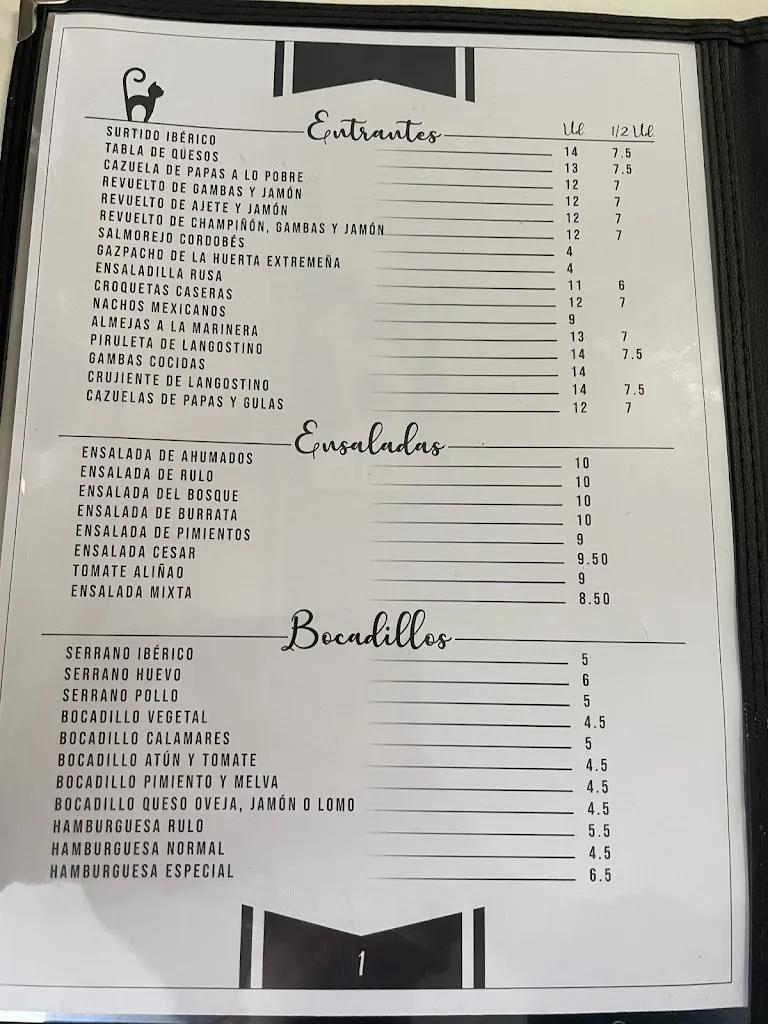 Entrantes Ud. 1/2 Ud.
SURTIDO IBÉRICO 14 7.5
TABLA DE QUESOS 13 7.5
CAZUELA DE PAPAS A LO POBRE 12 7
REVUELTO DE GAMBAS Y JAMÓN 12 7
REVUELTO DE AJETE Y JAMÓN 12 7
REVUELTO DE CHAMPIÑÓN, GAMBAS Y JAMÓN 12 7
SALMOREJO CORDOBÉS 4
GAZPACHO DE LA HUERTA EXTREMEÑA 4
ENSALADILLA RUSA 11 6
CROQUETAS CASERAS 12 7
NACHOS MEXICANOS 9
ALMEJAS A LA MARINERA 13 7
PIRULETA DE LANGOSTINO 14 7.5
GAMBAS COCIDAS 14
CRUJIENTE DE LANGOSTINO 14 7.5
CAZUELAS DE PAPAS Y GULAS 12 7
Ensaladas
ENSALADA DE AHUMADOS 10
ENSALADA DE RULO 10
ENSALADA DEL BOSQUE 10
ENSALADA DE BURRATA 10
ENSALADA DE PIMIENTOS 9
ENSALADA CESAR 9.50
TOMATE ALIÑAO 9
ENSALADA MIXTA 8.50
Bocadillos
SERRANO IBÉRICO 5
SERRANO HUEVO 6
SERRANO POLLO 5
BOCADILLO VEGETAL 4.5
BOCADILLO CALAMARES 5
BOCADILLO ATÚN Y TOMATE 4.5
BOCADILLO PIMIENTO Y MELVA 4.5
BOCADILLO QUESO OVEJA, JAMÓN O LOMO 4.5
HAMBURGUESA RULO 5.5
HAMBURGUESA NORMAL 4.5
HAMBURGUESA ESPECIAL 6.5
1